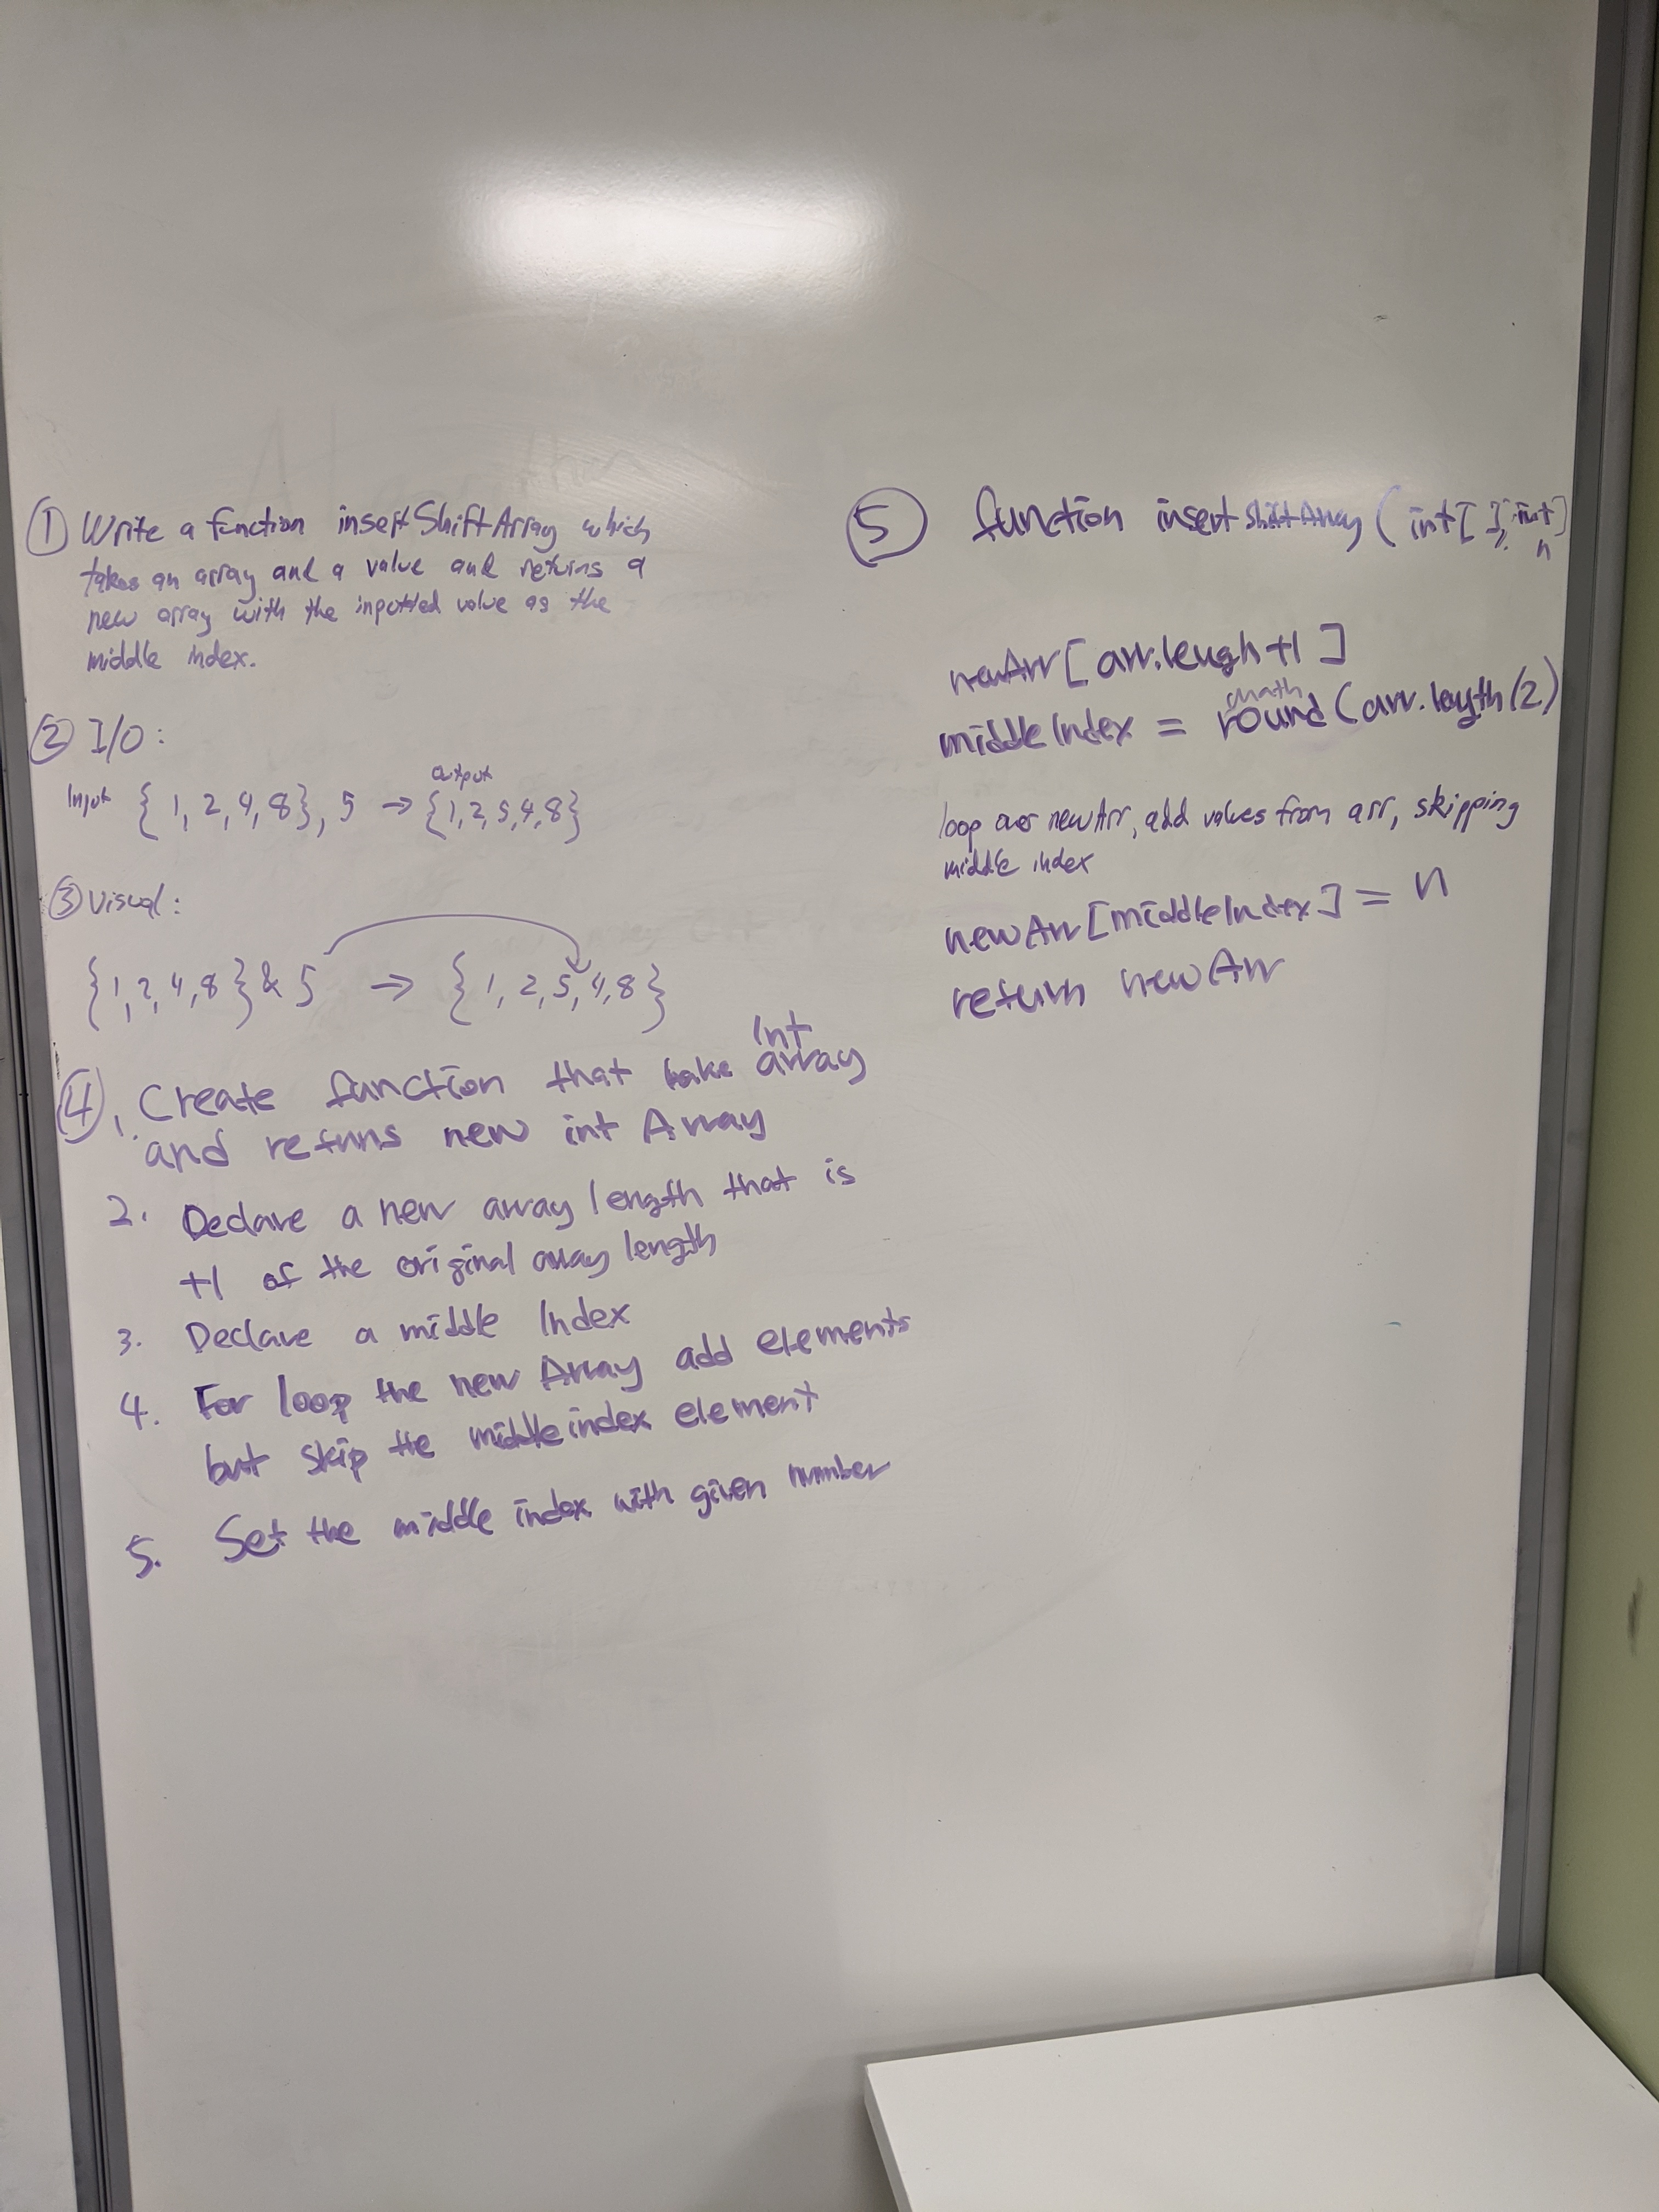 ① Write a function insertShiftArray which
takes an array and a value and returns a
new array with the inputted value as the
middle index.
② I/O:
Input {1, 2, 4, 8}, 5 → output {1, 2, 5, 4, 8}
③ Visual:
{1, 2, 4, 8} & 5 → {1, 2, 5, 4, 8}
④ 1. Create function that take int array
and returns new int Array
2. Declare a new array length that is
+1 of the original array length
3. Declare a middle Index
4. For loop the new Array add elements
but skip the middle index element
5. Set the middle index with given number
⑤ function insertShiftArray (int[], int n)
newArr[arr.lengh+1]
middleIndex = math round (arr.length/2)
loop over newArr, add values from arr, skipping
middle index
newArr[middleIndex] = n
return newArr